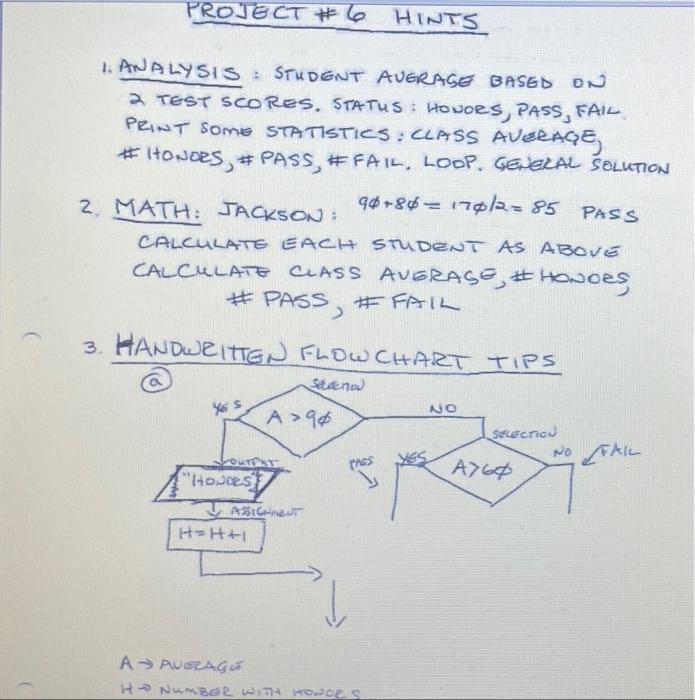 PROJECT #6 HINTS
1. ANALYSIS: STUDENT AVERAGE BASED ON
2 TEST SCORES. STATUS: HONORS, PASS, FAIL.
PRINT SOME STATISTICS: CLASS AVERAGE,
# HONORS, # PASS, # FAIL. LOOP. GENERAL SOLUTION
2. MATH: JACKSON: 90+80=170/2=85 PASS
CALCULATE EACH STUDENT AS ABOVE
CALCULATE CLASS AVERAGE, # HONORS,
# PASS, # FAIL
3. HANDWRITTEN FLOWCHART TIPS
a
SELECTION
YES
A>90
NO
SELECTION
OUTPUT
"HONORS"
PASS
YES
A>60
NO
FAIL
ASSIGNMENT
H=H+1
A→AVERAGE
H→NUMBER WITH HONORS